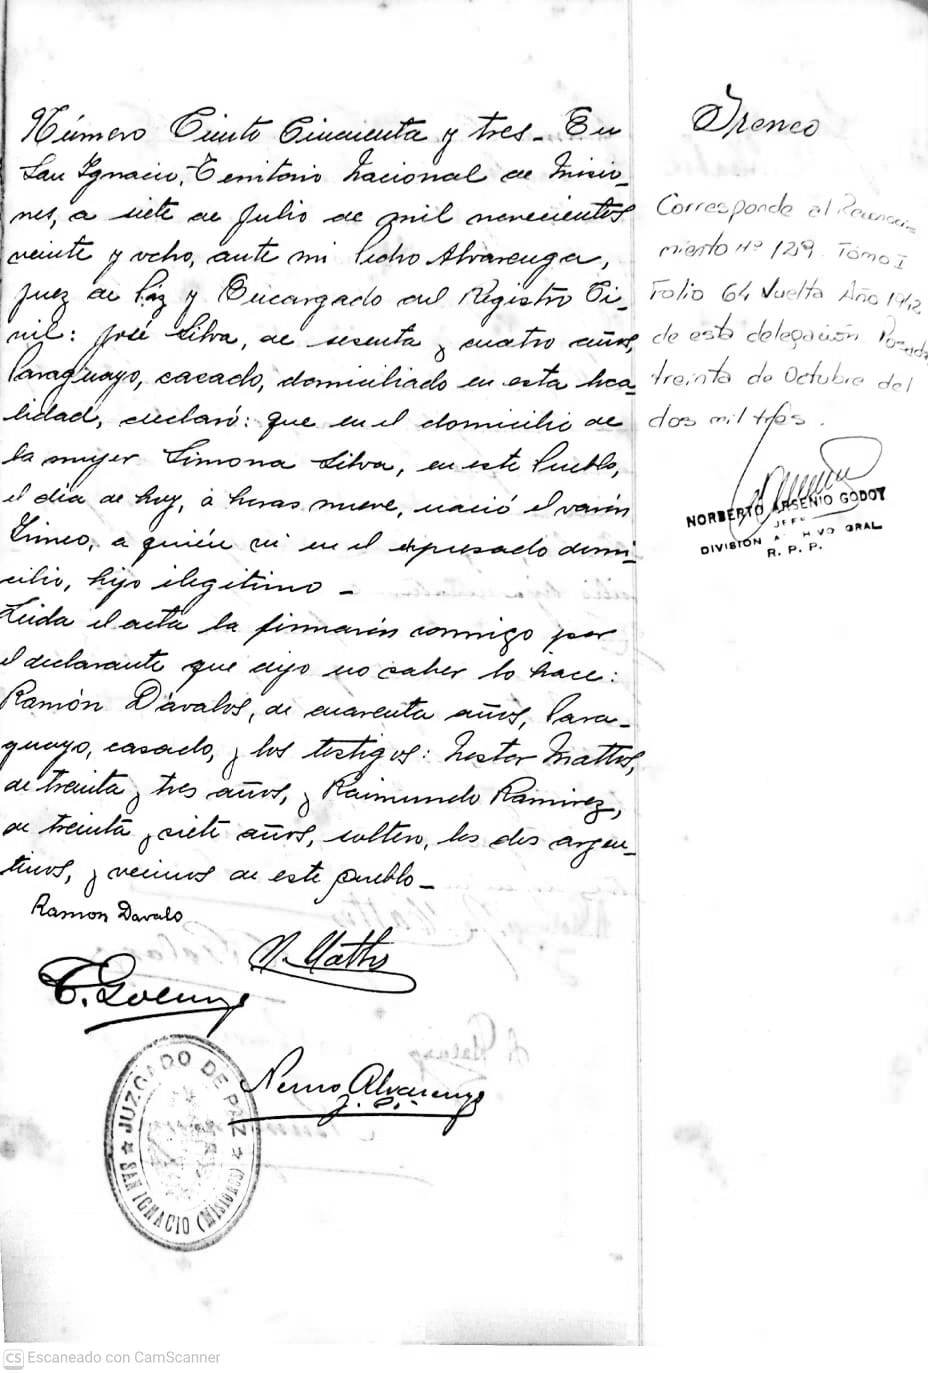 Número Ciento Cincuenta y tres_ En
San Ignacio, Territorio Nacional de Misio-
nes, a siete de Julio de mil novecientos
veinte y ocho, ante mi Pedro Alvarenga,
Juez de Paz y Encargado del Registro Ci-
vil: José Silva, de sesenta y cuatro años,
Paraguayo, casado, domiciliado en esta loca-
lidad, declaró: que en el domicilio de
la mujer Simona Silva, en este Pueblo,
el día de hoy, á horas nueve, nació el varón
Irineo, a quién vi en el expresado domi-
cilio, hijo ilegitimo _
Leida el acta la firmarón conmigo por
el declarante que dijo no saber lo hace:
Ramón Dávalos, de cuarenta años, Para-
guayo, casado, y los testigos: Nestor Mattos,
de treinta y tres años, y Raimundo Ramirez,
de treinta y siete años, soltero, los dos argen-
tinos, y vecinos de este pueblo_
Ramon Davalo
N. Matto
Alvarenga
J. P.
JUZGADO DE PAZ
SAN IGNACIO (MISIONES)
Corresponde al Reconoci
miento Nº 129 Tomo I
Folio 64 Vuelta Año 1942
de esta delegación Posadas
treinta de Octubre del
dos mil tres.
NORBERTO ARSENIO GODOY
JEFE
DIVISION ARCHIVO GRAL
R. P. P.
CS Escaneado con CamScanner